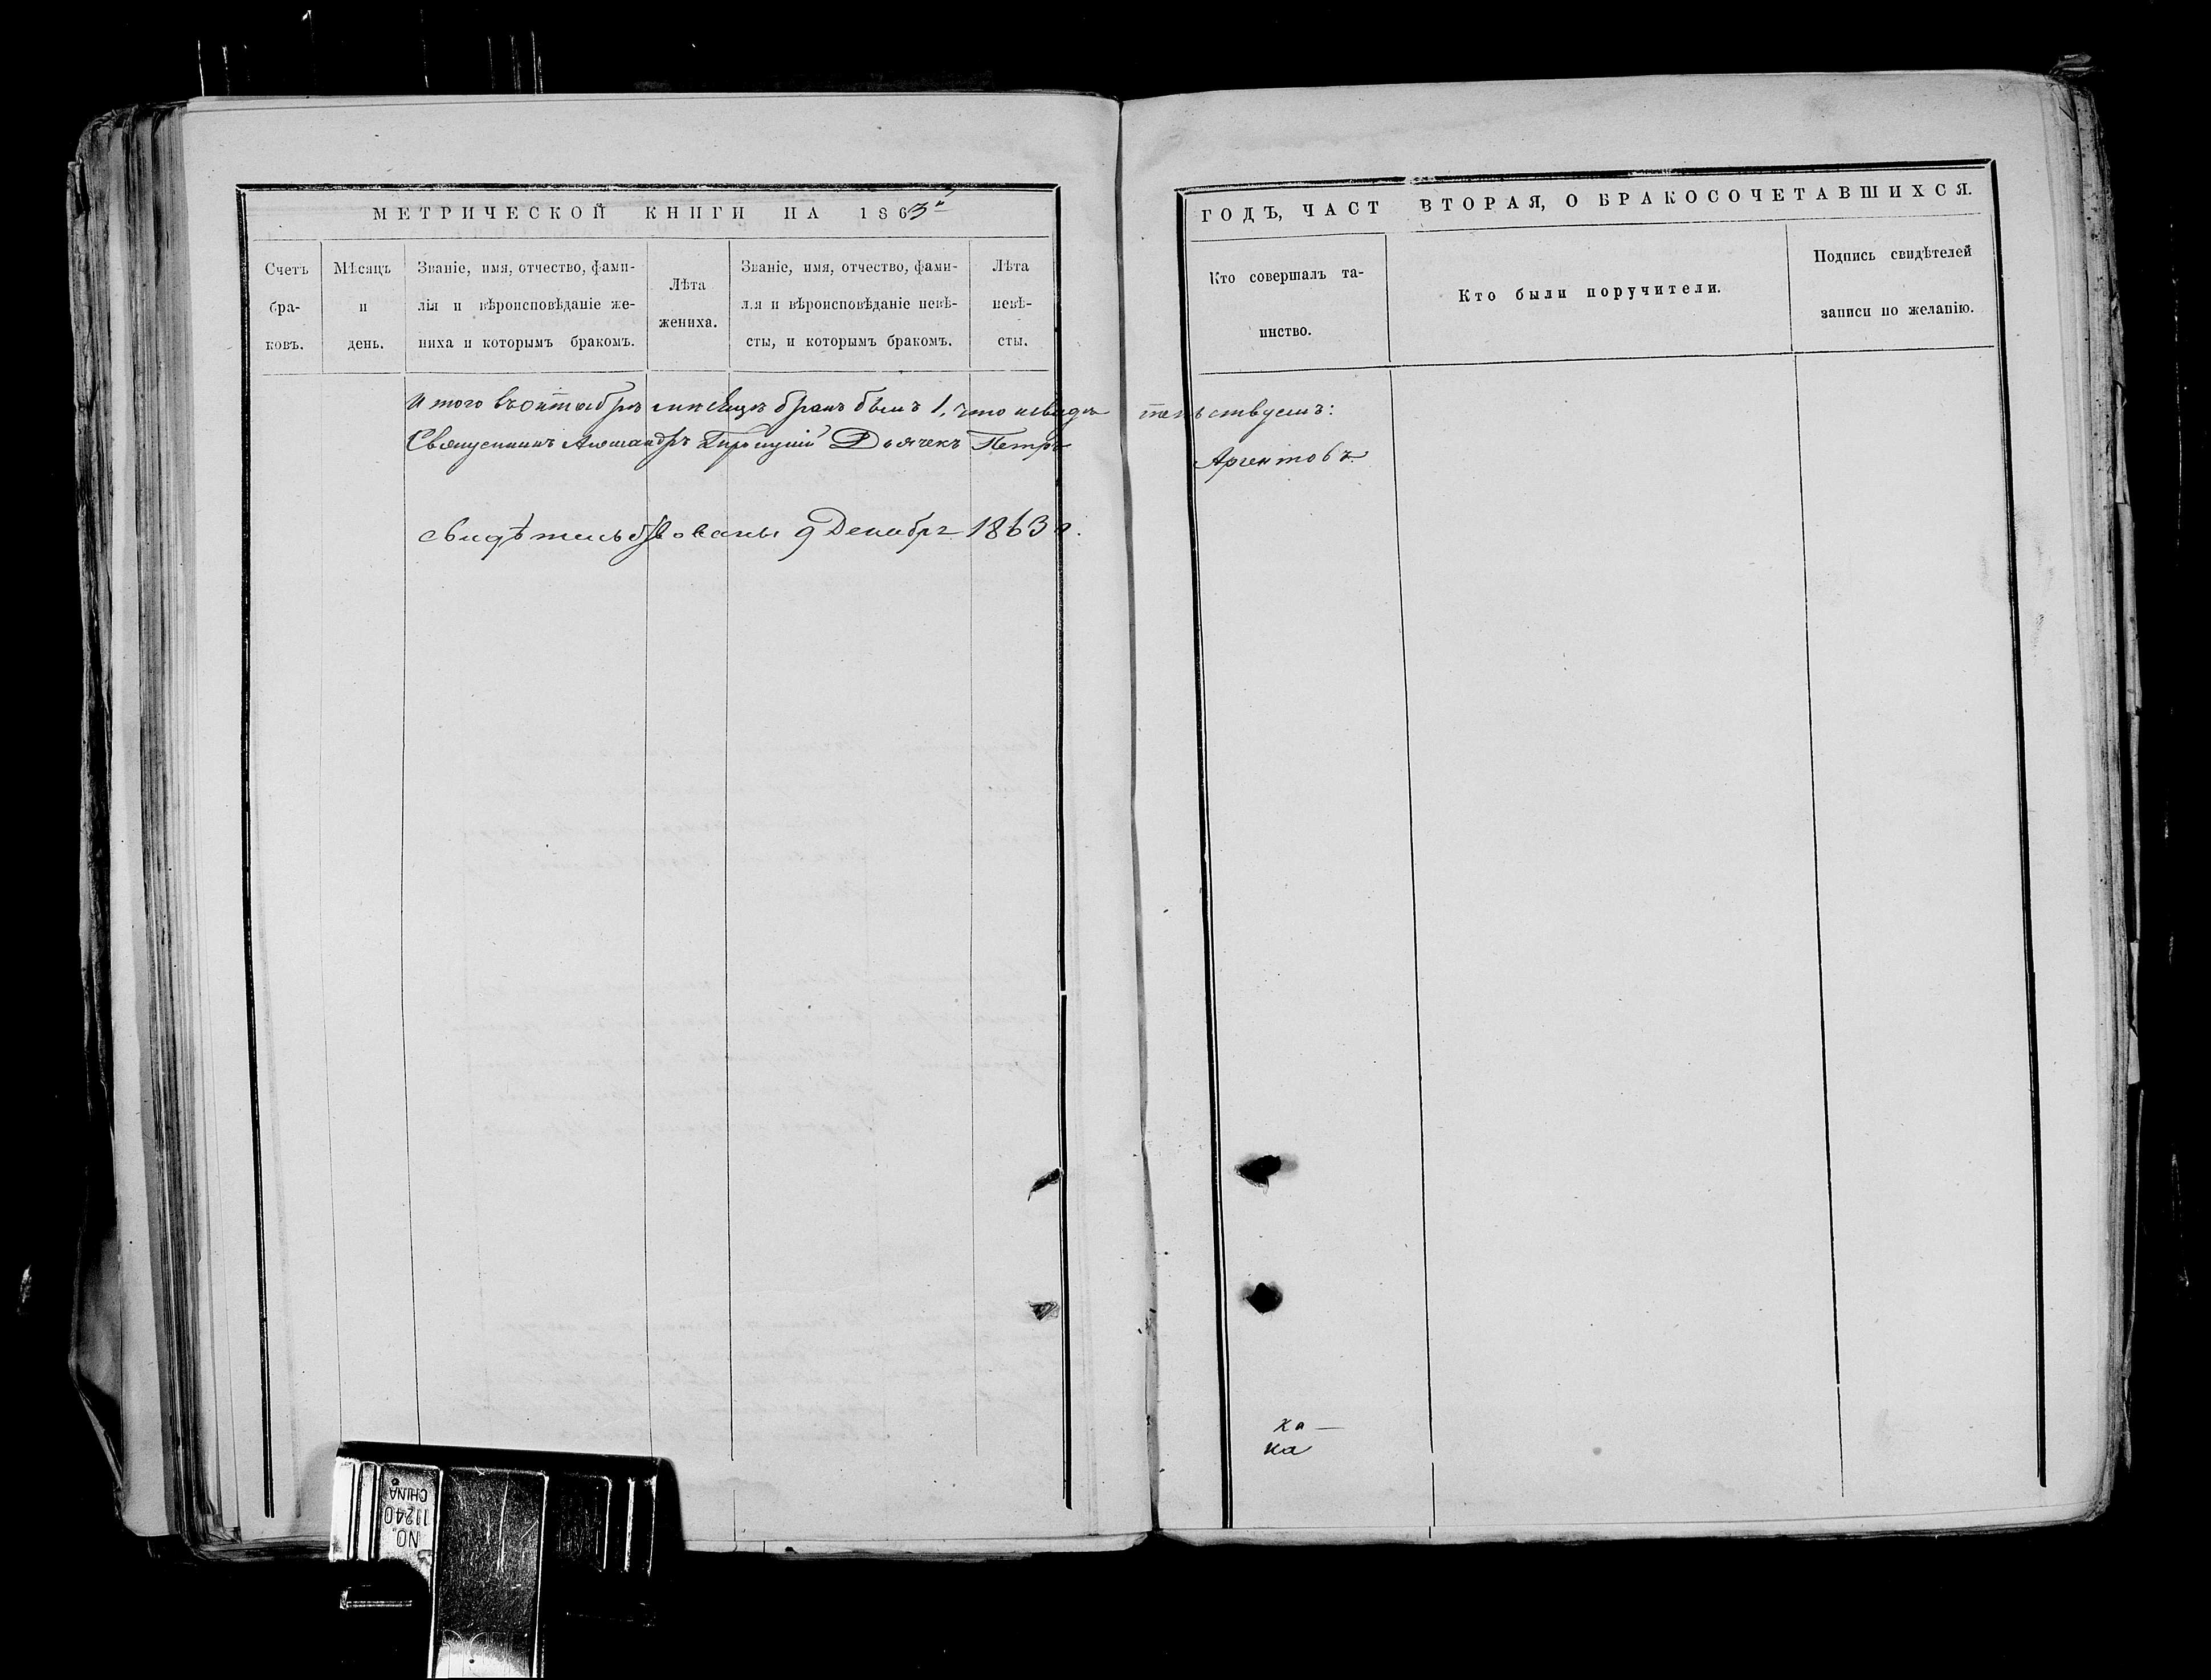 МЕТРИЧЕСКОЙ КНИГИ НА 1863й
ГОДЪ, ЧАСТ ВТОРАЯ, О БРАКОСОЧЕТАВШИХСЯ.
Счетъ
бра-
ковъ.
Мѣсяцъ
и
день.
Званіе, имя, отчество, фами-
лія и вѣроисповѣданіе же-
ниха и которымъ бракомъ.
Лѣта
жениха.
Званіе, имя, отчество, фами-
лія и вѣроисповѣданіе невѣ-
сты, и которымъ бракомъ.
Лѣта
невѣ-
сты.
Кто совершалъ та-
инство.
Кто были поручители.
Подпись свидѣтелей
записи по желанію.
Итого въ октябрѣ мѣсяцѣ бракъ былъ 1, что и свидѣтельствуемъ:
Священникъ Александръ Дьячекъ Петръ Аргентовъ.
свидѣтельствованы 9 Декабря 1863 г.
ка
NO.
11240
CHINA